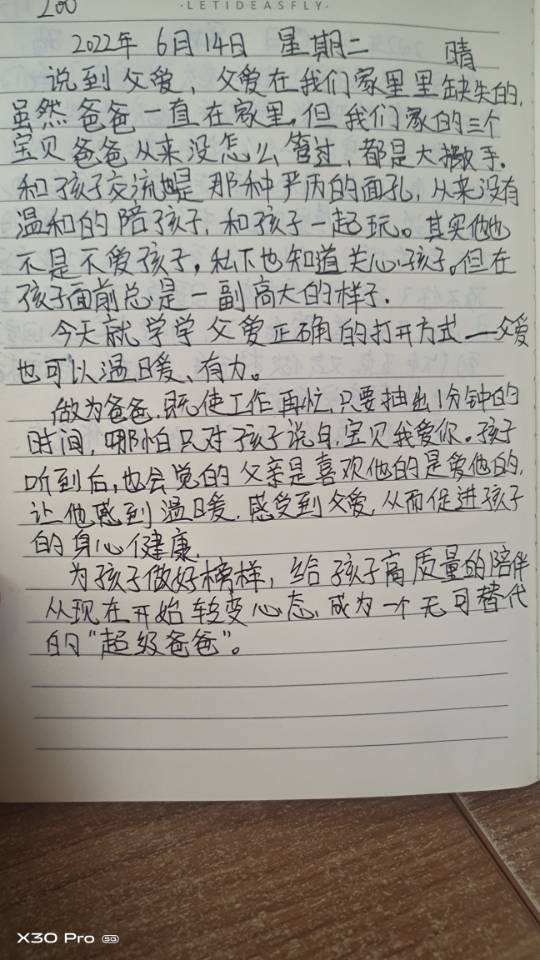 200
·LETIDEASFLY·
2022年 6月14日 星期二 晴
说到父爱，父爱在我们家里里缺失的，
虽然爸爸一直在家里，但我们家的三个
宝贝爸爸从来没怎么管过，都是大撒手.
和孩子交流也是那种严厉的面孔，从来没有
温和的陪孩子，和孩子一起玩。其实他也
不是不爱孩子，私下也知道关心孩子。但在
孩子面前总是一副高大的样子.
今天就学学父爱正确的打开方式—父爱
也可以温暖、有力。
做为爸爸，既使工作再忙，只要抽出1分钟的
时间，哪怕只对孩子说句，宝贝我爱你。孩子
听到后，也会觉的父亲是喜欢他的是爱他的，
让他感到温暖，感受到父爱，从而促进孩子
的身心健康.
为孩子做好榜样，给孩子高质量的陪伴
从现在开始转变心态，成为一个无可替代
的“超级爸爸”。
X30 Pro 5G